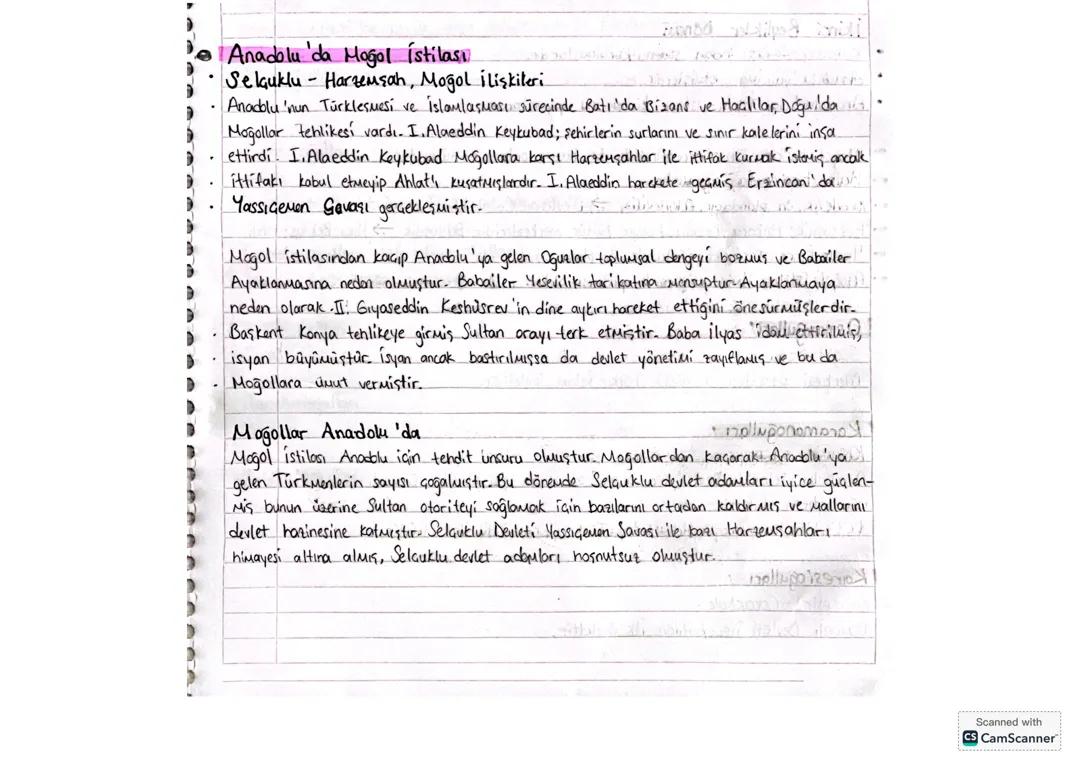 Anadolu'da Moğol İstilası
Selçuklu - Harzemşah, Moğol İlişkileri
Anadolu'nun Türkleşmesi ve İslamlaşması sürecinde Batı'da Bizans ve Haçlılar, Doğu'da
Moğollar tehlikesi vardı. I.Alaeddin Keykubad; şehirlerin surlarını ve sınır kalelerini inşa
ettirdi. I.Alaeddin Keykubad Moğollara karşı Harzemşahlar ile ittifak kurmak istemiş ancak
ittifakı kabul etmeyip Ahlat'ı kuşatmışlardır. I.Alaeddin harekete geçmiş Erzincan'da
Yassıçemen Savaşı gerçekleşmiştir.
Moğol istilasından kaçıp Anadolu'ya gelen Oğuzlar toplumsal dengeyi bozmuş ve Babailer
Ayaklanmasına neden olmuştur. Babailer Yesevilik tarikatına mensuptur. Ayaklanmaya
neden olarak II. Gıyaseddin Keshüsrev'in dine aykırı hareket ettiğini öne sürmüşlerdir.
Başkent Konya tehlikeye girmiş Sultan arayı terk etmiştir. Baba İlyas idam ettirilmiş,
isyan büyümüştür. İsyan ancak bastırılmışsa da devlet yönetimi zayıflamış ve bu da
Moğollara umut vermiştir.
Moğollar Anadolu'da
Moğol istilası Anadolu için tehdit unsuru olmuştur. Moğollardan kaçarak Anadolu'ya
gelen Türkmenlerin sayısı çoğalmıştır. Bu dönemde Selçuklu devlet adamları iyice güçlen-
miş bunun üzerine Sultan otoriteyi sağlamak için bazılarını ortadan kaldırmış ve mallarını
devlet hazinesine katmıştır. Selçuklu Devleti Yassıçemen Savaşı ile bazı Harzemşahları
himayesi altına almış, Selçuklu devlet adamları hoşnutsuz olmuştur.
Scanned with
CS CamScanner